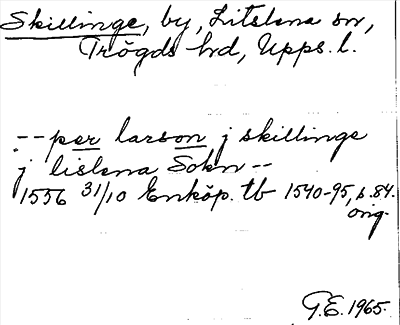 Skillinge, by, Litslena sn,
Trögds hrd, Upps. l.
-- per larson j skillinge
j lislena Sokn --
1556 31/10 Enköp. tb 1540-95, s. 84.
orig.
G.E. 1965.